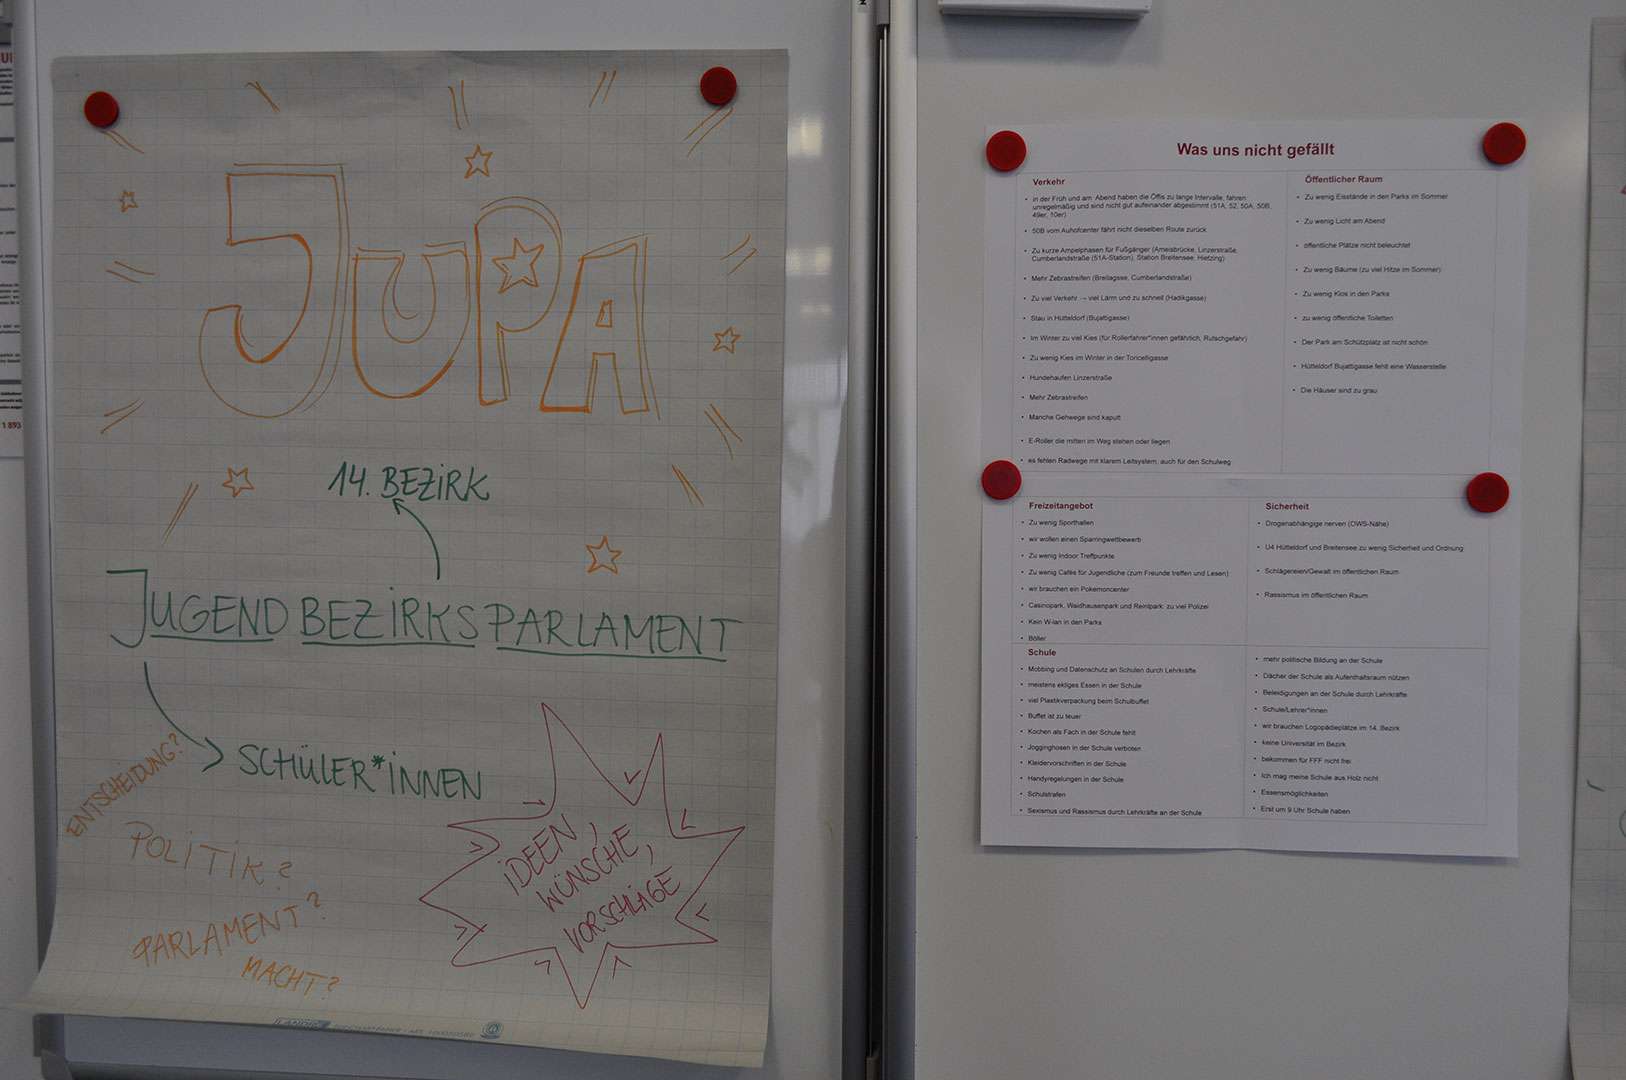 JUPA
14. BEZIRK
JUGENDBEZIRKSPARLAMENT
SCHÜLER*INNEN
ENTSCHEIDUNG?
POLITIK?
PARLAMENT?
MACHT?
IDEEN,
WÜNSCHE,
VORSCHLÄGE
1 893
Was uns nicht gefällt
Verkehr
• in der Früh und am Abend haben die Öffis zu lange Intervalle, fahren
unregelmäßig und sind nicht gut aufeinander abgestimmt (51A, 52, 50A, 50B,
49er, 10er)
• 50B vom Auhofcenter fährt nicht dieselben Route zurück
• Zu kurze Ampelphasen für Fußgänger (Ameisbrücke, Linzerstraße,
Cumberlandstraße (51A-Station), Station Breitensee, Hietzing)
• Mehr Zebrastreifen (Breitagsse, Cumberlandstraße)
• Zu viel Verkehr → viel Lärm und zu schnell (Hadikgasse)
• Stau in Hütteldorf (Bujattigasse)
• Im Winter zu viel Kies (für Rollerfahrer*innen gefährlich, Rutschgefahr)
• Zu wenig Kies im Winter in der Toricelligasse
• Hundehaufen Linzerstraße
• Mehr Zebrastreifen
• Manche Gehwege sind kaputt
• E-Roller die mitten im Weg stehen oder liegen
• es fehlen Radwege mit klarem Leitsystem, auch für den Schulweg
Öffentlicher Raum
• Zu wenig Eisstände in den Parks im Sommer
• Zu wenig Licht am Abend
• öffentliche Plätze nicht beleuchtet
• Zu wenig Bäume (zu viel Hitze im Sommer)
• Zu wenig Klos in den Parks
• zu wenig öffentliche Toiletten
• Der Park am Schützplatz ist nicht schön
• Hütteldorf Bujattigasse fehlt eine Wasserstelle
• Die Häuser sind zu grau
Freizeitangebot
• Zu wenig Sporthallen
• wir wollen einen Sparringwettbewerb
• Zu wenig Indoor Treffpunkte
• Zu wenig Cafés für Jugendliche (zum Freunde treffen und Lesen)
• wir brauchen ein Pokemoncenter
• Casinopark, Waidhausenpark und Reinlpark: zu viel Polizei
• Kein W-lan in den Parks
• Böller
Sicherheit
• Drogenabhängige nerven (OWS-Nähe)
• U4 Hütteldorf und Breitensee zu wenig Sicherheit und Ordnung
• Schlägereien/Gewalt im öffentlichen Raum
• Rassismus im öffentlichen Raum
Schule
• Mobbing und Datenschutz an Schulen durch Lehrkräfte
• meistens ekliges Essen in der Schule
• viel Plastikverpackung beim Schulbuffet
• Buffet ist zu teuer
• Kochen als Fach in der Schule fehlt
• Jogginghosen in der Schule verboten
• Kleidervorschriften in der Schule
• Handyregelungen in der Schule
• Schulstrafen
• Sexismus und Rassismus durch Lehrkräfte an der Schule
• mehr politische Bildung an der Schule
• Dächer der Schule als Aufenthaltsraum nützen
• Beleidigungen an der Schule durch Lehrkräfte
• Schule/Lehrer*innen
• wir brauchen Logopädieplätze im 14. Bezirk
• keine Universität im Bezirk
• bekommen für FFF nicht frei
• Ich mag meine Schule aus Holz nicht
• Essensmöglichkeiten
• Erst um 9 Uhr Schule haben